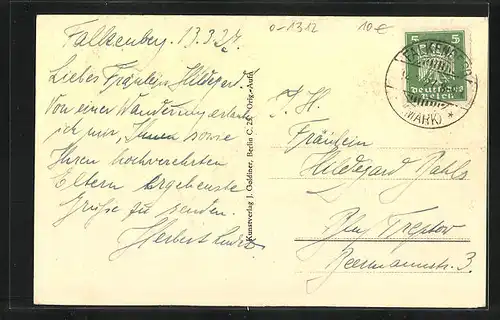 o-1312
10 €
Falkenberg, 13.3.27.
Liebes Fräulein Hildegard!
Von einer Wanderung erlaube
ich mir, Ihnen sowie
Ihren hochverehrten
Eltern ergebenste
Grüße zu senden.
Herbert
Kunstverlag J. Goldiner, Berlin C. 25 Orig.-Aufn.
5 5
Deutsches
Reich
FALKENBERG
(MARK) *
Fräulein
Hildegard Bahls
Bln Treptow
Beermannstr. 3.